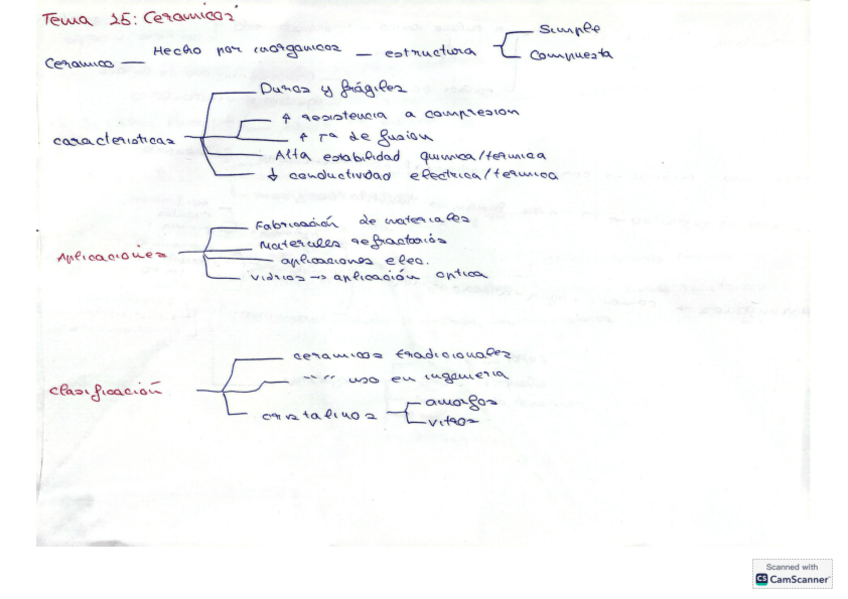 Tema 15: Ceramicos
Ceramico — Hecho por inorganicos — estructura
Simple
Compuesta
características
Duros y frágiles
↑ resistencia a compresion
↑ Tª de fusion
Alta estabilidad quimica/termica
↓ conductividad electrica/termica
Aplicaciones
Fabricación de materiales
Materiales refractarios
aplicaciones elec.
vidrios → aplicación optica
Clasificación
ceramicos tradicionales
" " uso en ingenieria
cristalinos
amorfos
vitros
Scanned with
CS CamScanner